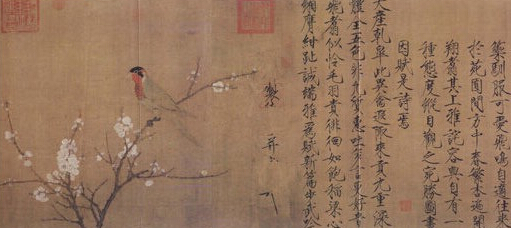 籞馴服可愛飛鳴自適往來
於苑囿間方中春繁杏遍開
翔翥其上雅詫容與自有一
種態度縱目觀之宛勝圖畫
因賦是詩焉
天產乾皋此異禽遐陬來貢九重深
體全五色非凡質惠吐多言更好音
飛翥似憐毛羽貴徘徊如飽稻粱心
緗膺紺趾誠端雅為賦新篇步武吟